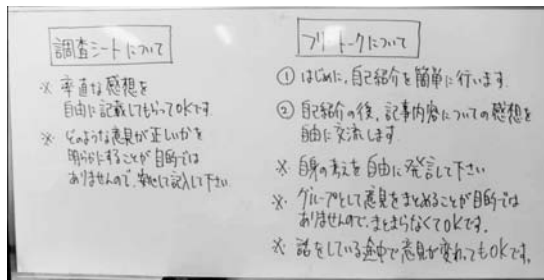 調査シートについて
※ 率直な感想を
自由に記載してもらってOKです
※ どのような意見が正しいかを
明らかにすることが目的では
ありませんので、安心して記入して下さい
フリートークについて
① はじめに、自己紹介を簡単に行います.
② 自己紹介の後、記事内容についての感想を
自由に交流します
※ 自身の考えを自由に発言して下さい
※ グループとして意見をまとめることが目的では
ありませんので、まとまらなくてOKです.
※ 話をしている途中で意見が変わってもOKです.